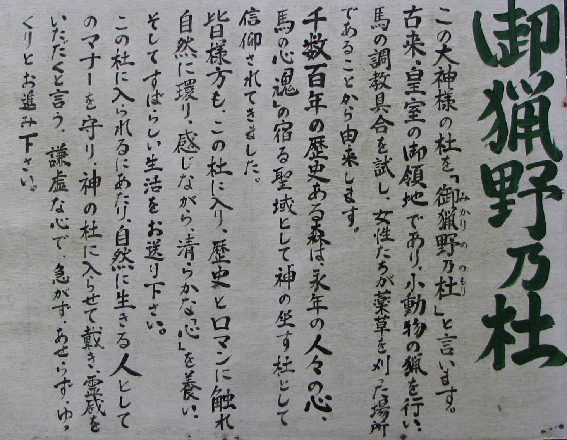 御猟野乃杜
この大神様の杜を「御猟野乃杜」と言います。
みかりののもり
古来、皇室の御領地であり、小動物の猟を行い、
馬の調教具合を試し、女性たちが薬草を刈った場所
であることから由来します。
千数百年の歴史ある森は永年の人々の心、
馬の心「魂」の宿る聖域として神の坐す杜として
信仰されてきました。
皆様方も、この杜に入り、歴史とロマンに触れ
自然に環り、感じながら、清らかな心」を養い、
そしてすばらしい生活をお送り下さい。
この杜に入られるにあたり、自然に生きる人として
のマナーを守り、神の杜に入らせて戴き、霊感を
いただくと言う、謙虚な心で、急がず、あせらず、ゆっ
くりとお進み下さい。